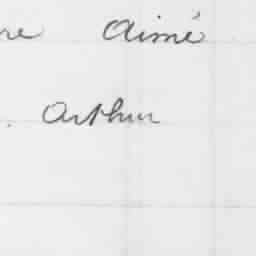 re Aimé
. Arthur